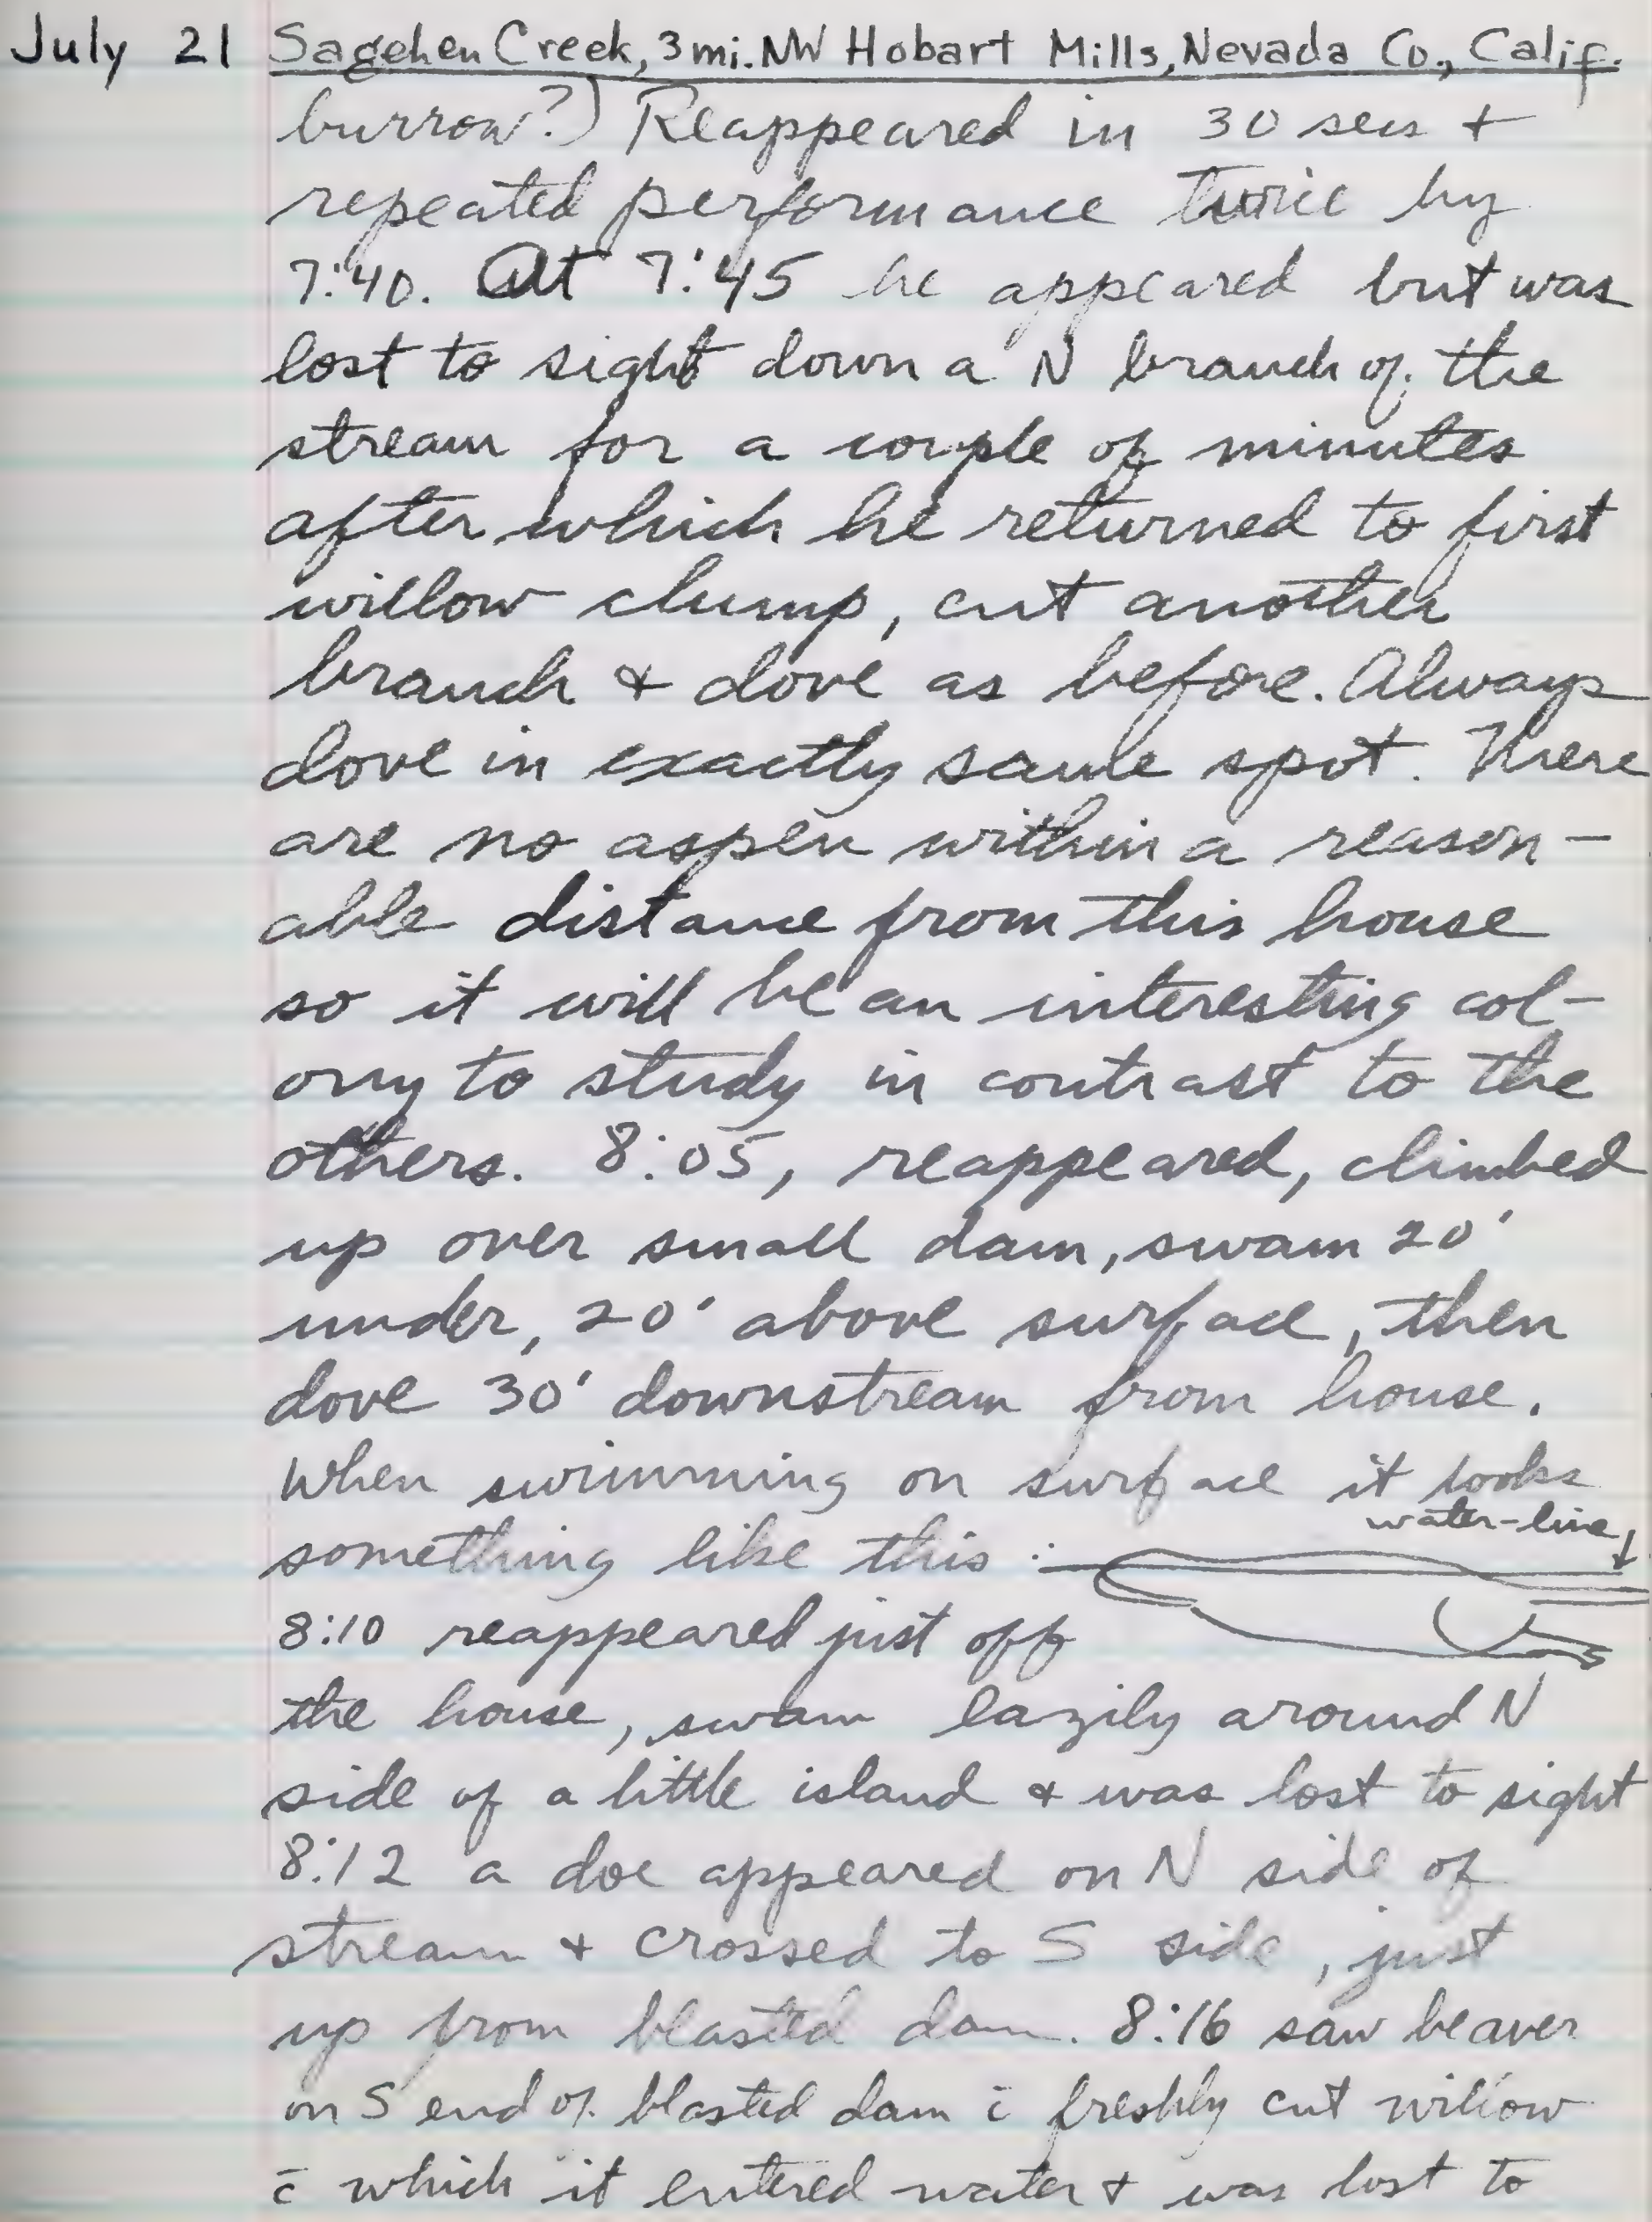 July 21 Sagehen Creek, 3 mi. NW Hobart Mills, Nevada Co., Calif.
burrow?) Reappeared in 30 secs +
repeated performance twice by
7:40. At 7:45 he appeared but was
lost to sight down a N branch of the
stream for a couple of minutes
after which he returned to first
willow clump, cut another
branch + dove as before. Always
dove in exactly same spot. There
are no aspen within a reason-
able distance from this house
so it will be an interesting col-
ony to study in contrast to the
others. 8:05, reappeared, climbed
up over small dam, swam 20'
under, 20' above surface, then
dove 30' downstream from house.
When swimming on surface it looks
water-line
something like this :
8:10 reappeared just off
the house, swam lazily around N
side of a little island + was lost to sight
8:12 a doe appeared on N side of
stream + crossed to S side, just
up from blasted dam. 8:16 saw beaver
on S end of blasted dam c̄ freshly cut willow
c̄ which it entered water + was lost to